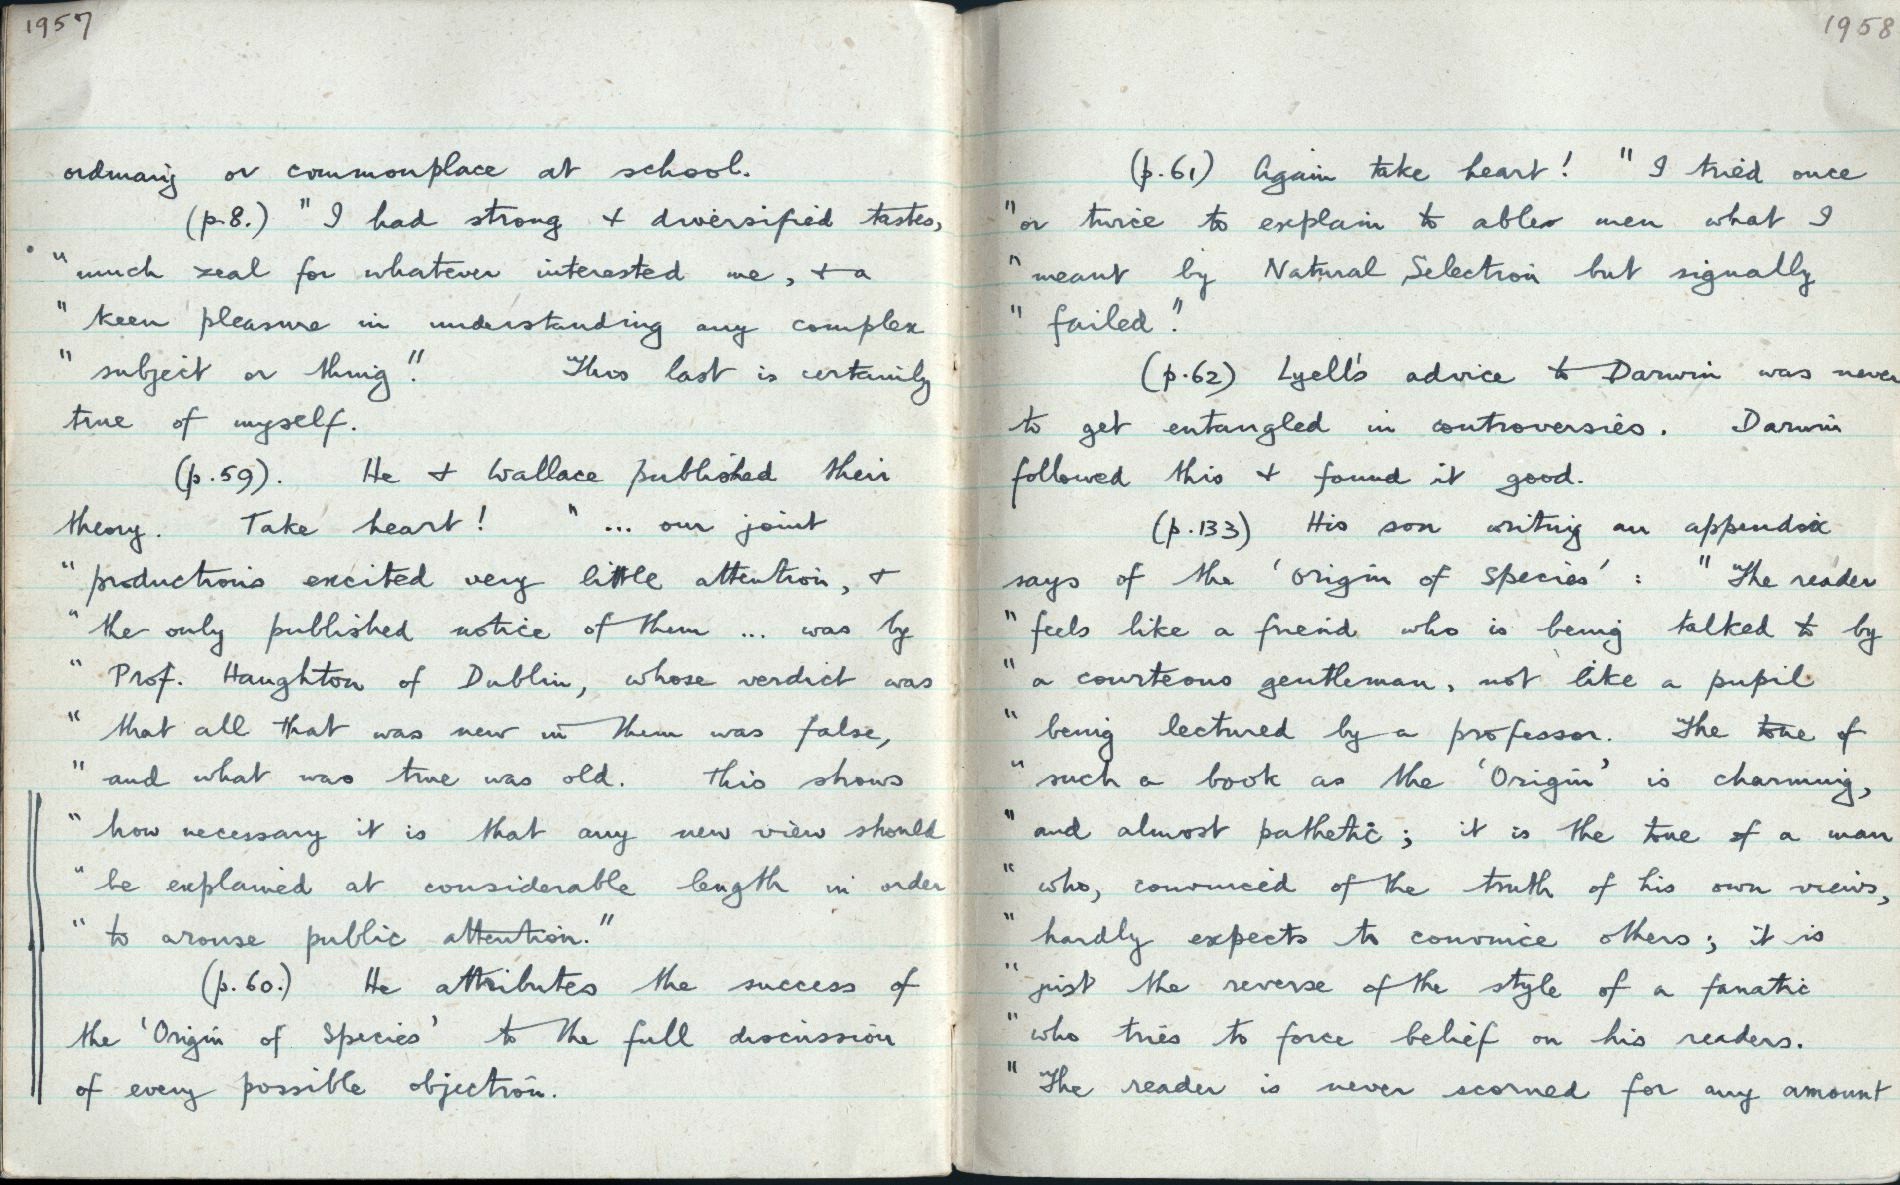 1957
ordinary or commonplace at school.
(p.8.) "I had strong + diversified tastes,
"much zeal for whatever interested me, + a
"keen pleasure in understanding any complex
"subject or thing". This last is certainly
true of myself.
(p.59). He + Wallace published their
theory. Take heart! "... our joint
"productions excited very little attention, +
"the only published notice of them ... was by
"Prof. Haughton of Dublin, whose verdict was
"that all that was new in them was false,
"and what was true was old. This shows
"how necessary it is that any new view should
"be explained at considerable length in order
"to arouse public attention."
(p.60.) He attributes the success of
the 'Origin of Species' to the full discussion
of every possible objection.
1958
(p.61) Again take heart! "I tried once
"or twice to explain to able men what I
"meant by Natural Selection but signally
"failed".
(p.62) Lyell's advice to Darwin was never
to get entangled in controversies. Darwin
followed this + found it good.
(p.133) His son writing an appendix
says of the 'Origin of Species': "The reader
"feels like a friend who is being talked to by
"a courteous gentleman, not like a pupil
"being lectured by a professor. The tone of
"such a book as the 'Origin' is charming,
"and almost pathetic; it is the tone of a man
"who, convinced of the truth of his own views,
"hardly expects to convince others; it is
"just the reverse of the style of a fanatic
"who tries to force belief on his readers.
"The reader is never scorned for any amount